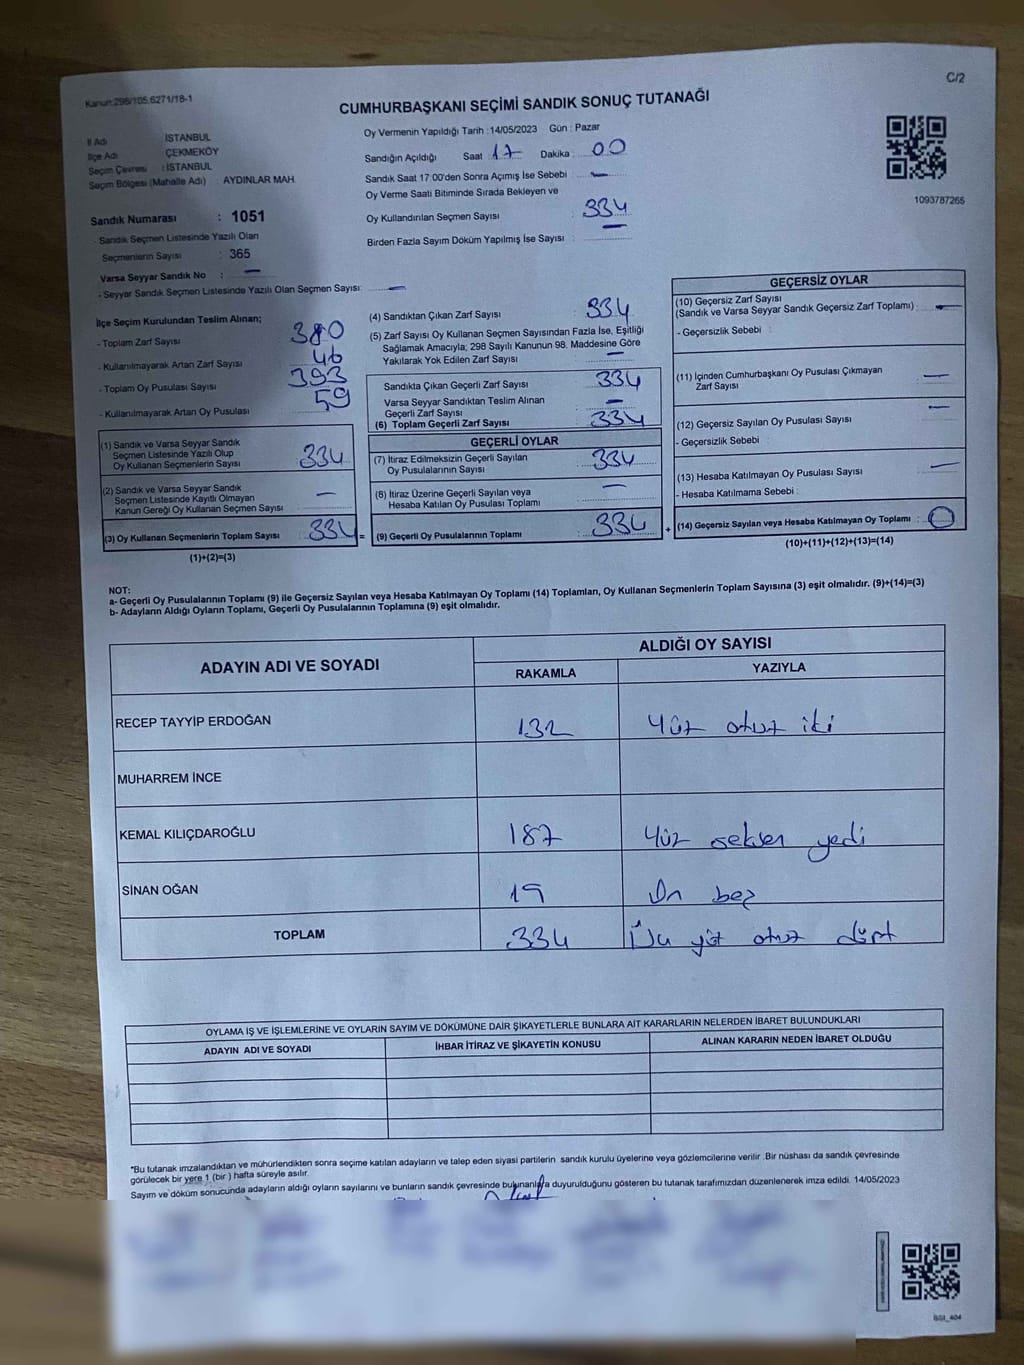 Kanun:298/105,6271/18-1
C/2
CUMHURBAŞKANI SEÇİMİ SANDIK SONUÇ TUTANAĞI
İl Adı İSTANBUL
İlçe Adı ÇEKMEKÖY
Seçim Çevresi : İSTANBUL
Seçim Bölgesi (Mahalle Adı) : AYDINLAR MAH.
Oy Vermenin Yapıldığı Tarih : 14/05/2023 Gün : Pazar
Sandığın Açıldığı Saat 17 Dakika : 00
Sandık Saat 17:00'den Sonra Açımış İse Sebebi : -
Oy Verme Saati Bitiminde Sırada Bekleyen ve
Oy Kullandırılan Seçmen Sayısı : 334
Birden Fazla Sayım Döküm Yapılmış İse Sayısı : -
1093787265
Sandık Numarası : 1051
- Sandık Seçmen Listesinde Yazılı Olan
Seçmenlerin Sayısı : 365
Varsa Seyyar Sandık No : -
- Seyyar Sandık Seçmen Listesinde Yazılı Olan Seçmen Sayısı: -
İlçe Seçim Kurulundan Teslim Alınan;
- Toplam Zarf Sayısı 380
- Kullanılmayarak Artan Zarf Sayısı 46
- Toplam Oy Pusulası Sayısı 393
- Kullanılmayarak Artan Oy Pusulası 59
(1) Sandık ve Varsa Seyyar Sandık
Seçmen Listesinde Yazılı Olup
Oy Kullanan Seçmenlerin Sayısı : 334
(2) Sandık ve Varsa Seyyar Sandık
Seçmen Listesinde Kayıtlı Olmayan
Kanun Gereği Oy Kullanan Seçmen Sayısı : -
(3) Oy Kullanan Seçmenlerin Toplam Sayısı : 334 =
(1)+(2)=(3)
(4) Sandıktan Çıkan Zarf Sayısı : 334
(5) Zarf Sayısı Oy Kullanan Seçmen Sayısından Fazla İse, Eşitliği
Sağlamak Amacıyla; 298 Sayılı Kanunun 98. Maddesine Göre
Yakılarak Yok Edilen Zarf Sayısı : -
Sandıkta Çıkan Geçerli Zarf Sayısı : 334
Varsa Seyyar Sandıktan Teslim Alınan
Geçerli Zarf Sayısı : -
(6) Toplam Geçerli Zarf Sayısı : 334
GEÇERLİ OYLAR
(7) İtiraz Edilmeksizin Geçerli Sayılan
Oy Pusulalarının Sayısı : 334
(8) İtiraz Üzerine Geçerli Sayılan veya
Hesaba Katılan Oy Pusulası Toplamı : -
(9) Geçerli Oy Pusulalarının Toplamı : 334 +
GEÇERSİZ OYLAR
(10) Geçersiz Zarf Sayısı
(Sandık ve Varsa Seyyar Sandık Geçersiz Zarf Toplamı) : -
- Geçersizlik Sebebi :
(11) İçinden Cumhurbaşkanı Oy Pusulası Çıkmayan
Zarf Sayısı : -
(12) Geçersiz Sayılan Oy Pusulası Sayısı -
- Geçersizlik Sebebi
(13) Hesaba Katılmayan Oy Pusulası Sayısı -
- Hesaba Katılmama Sebebi :
(14) Geçersiz Sayılan veya Hesaba Katılmayan Oy Toplamı : 0
(10)+(11)+(12)+(13)=(14)
NOT:
a- Geçerli Oy Pusulalarının Toplamı (9) ile Geçersiz Sayılan veya Hesaba Katılmayan Oy Toplamı (14) Toplamları, Oy Kullanan Seçmenlerin Toplam Sayısına (3) eşit olmalıdır. (9)+(14)=(3)
b- Adayların Aldığı Oyların Toplamı, Geçerli Oy Pusulalarının Toplamına (9) eşit olmalıdır.
ADAYIN ADI VE SOYADI ALDIĞI OY SAYISI
RAKAMLA YAZIYLA
RECEP TAYYİP ERDOĞAN 132 Yüz otuz iki
MUHARREM İNCE
KEMAL KILIÇDAROĞLU 187 Yüz seksen yedi
SİNAN OĞAN 15 On beş
TOPLAM 334 Üç yüz otuz dört
OYLAMA İŞ VE İŞLEMLERİNE VE OYLARIN SAYIM VE DÖKÜMÜNE DAİR ŞİKAYETLERLE BUNLARA AİT KARARLARIN NELERDEN İBARET BULUNDUKLARI
ADAYIN ADI VE SOYADI İHBAR İTİRAZ VE ŞİKAYETİN KONUSU ALINAN KARARIN NEDEN İBARET OLDUĞU
*Bu tutanak imzalandıktan ve mühürlendikten sonra seçime katılan adayların ve talep eden siyasi partilerin sandık kurulu üyelerine veya gözlemcilerine verilir .Bir nüshası da sandık çevresinde
görülecek bir yere 1 (bir ) hafta süreyle asılır.
Sayım ve döküm sonucunda adayların aldığı oyların sayılarını ve bunların sandık çevresinde bulunanlara duyurulduğunu gösteren bu tutanak tarafımızdan düzenlenerek imza edildi. 14/05/2023